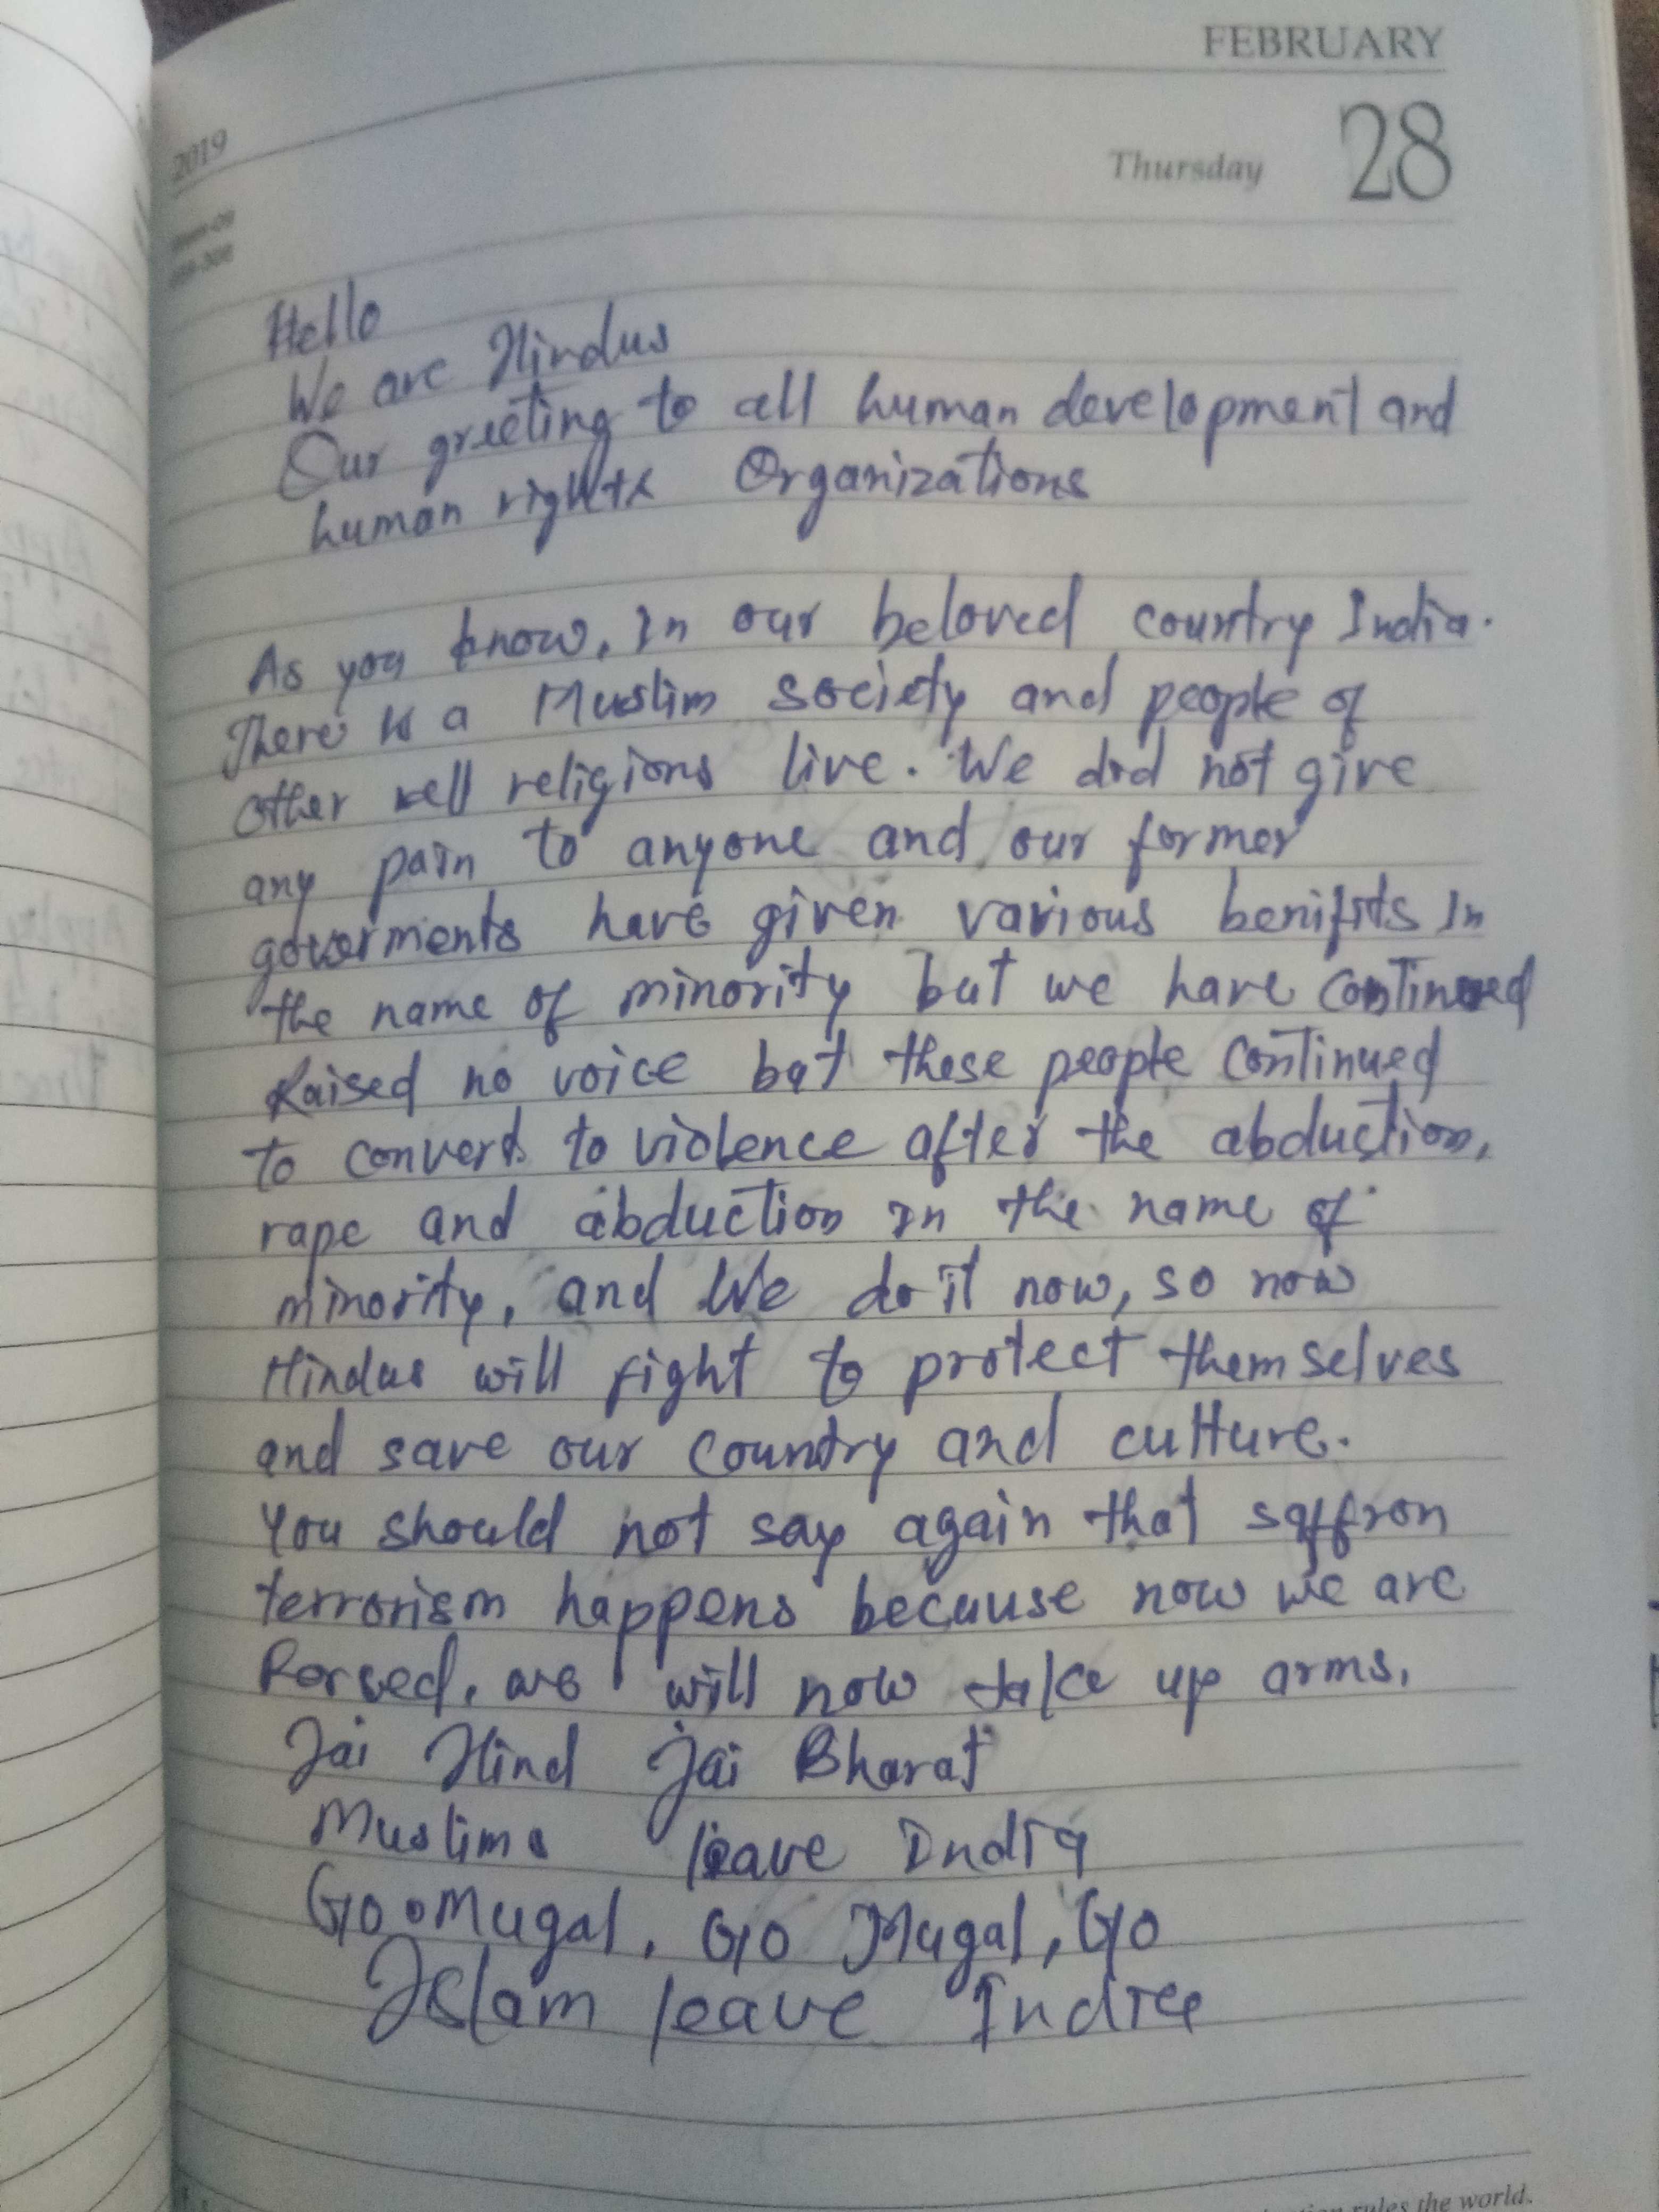 FEBRUARY
2019
Thursday 28
Hello
We are Hindus
Our greeting to all human development and
human rights Organizations
As you know, In our beloved country India.
There is a Muslim society and people of
other all religions live. We did not give
any pain to anyone and our former
goverments have given various benifits In
the name of minority but we have continued
Raised no voice bat these people continued
to convert to violence after the abduction,
rape and abduction in the name of
minority, and We do it now, so now
Hindus will fight to protect themselves
and save our country and culture.
You should not say again that saffron
terrorism happens because now we are
Forced, we will now take up arms.
Jai Hind Jai Bharat
Muslims leave India
Go Mugal, Go Mugal, Go
Islam leave India
rules the world.